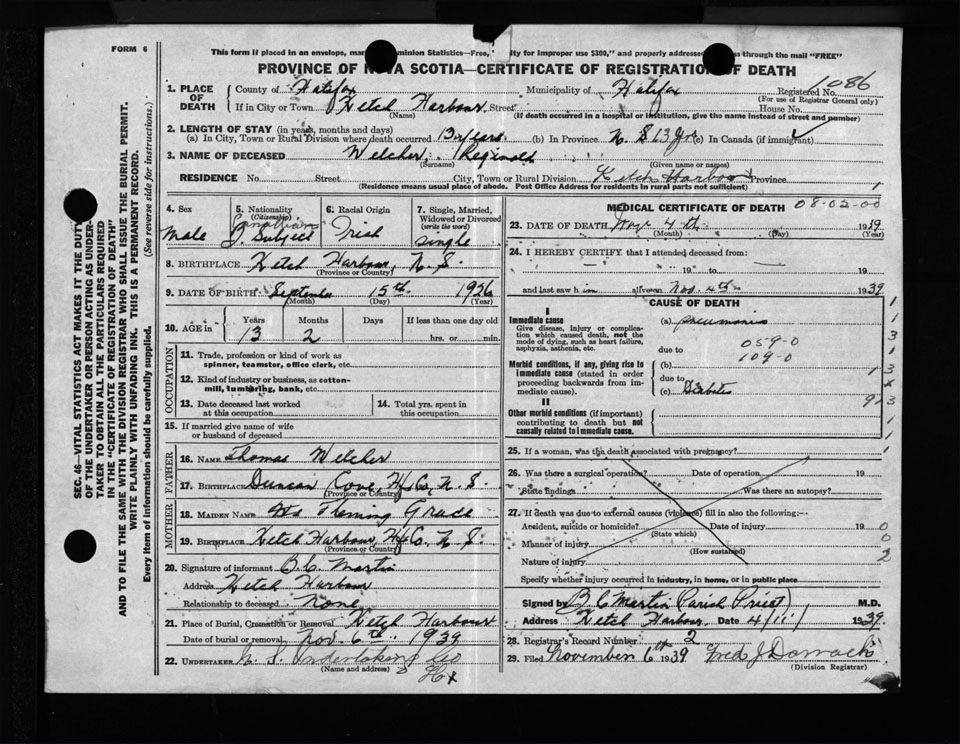 FORM 6
This form if placed in an envelope, mar ominion Statistics—Free, ty for improper use $300," and properly addresse s through the mail "FREE"
PROVINCE OF N VA SCOTIA—CERTIFICATE OF REGISTRATION OF DEATH
1086
1. PLACE OF DEATH County of Halifax Municipality of Halifax Registered No.
(For use of Registrar General only)
If in City or Town Ketch Harbour Street House No.
(Name) (If death occurred in a hospital or institution, give the name instead of street and number)
2. LENGTH OF STAY (in years, months and days)
(a) In City, Town or Rural Division where death occurred 13 years (b) In Province N. S 13 Yrs (c) In Canada (if immigrant)
3. NAME OF DECEASED Welcher, Reginald
(Surname) (Given name or names)
RESIDENCE No. Street City, Town or Rural Division Ketch Harbour Province
(Residence means usual place of abode. Post Office Address for residents in rural parts not sufficient) 1
4. Sex Male
5. Nationality (Citizenship) Canadian Subject
6. Racial Origin Irish
7. Single, Married, Widowed or Divorced (write the word) Single
8. BIRTHPLACE Ketch Harbour, N. S.
(Province or Country)
9. DATE OF BIRTH September 15th 1926
(Month) (Day) (Year)
10. AGE in Years Months Days If less than one day old
13 2 hrs. or min.
OCCUPATION
11. Trade, profession or kind of work as spinner, teamster, office clerk, etc.
12. Kind of industry or business, as cotton-mill, lumbering, bank, etc.
13. Date deceased last worked at this occupation
14. Total yrs. spent in this occupation
15. If married give name of wife or husband of deceased
FATHER
16. Name Thomas Welcher
17. Birthplace Duncan Cove, Hfx Co, N. S.
(Province or Country)
MOTHER
18. Maiden Name Fleming Grace
19. Birthplace Ketch Harbour, Hfx Co. N. S.
(Province or Country)
20. Signature of informant B. C. Martin
Address Ketch Harbour
Relationship to deceased None
21. Place of Burial, Cremation or Removal Ketch Harbour
Date of burial or removal Nov. 6th 1939
22. UNDERTAKER N. S. Undertaking Co
(Name and address) Hfx
MEDICAL CERTIFICATE OF DEATH 08-02-00
23. DATE OF DEATH Nov 4th 1939
(Month) (Day) (Year)
24. I HEREBY CERTIFY that I attended deceased from:
19 to 19
and last saw h im alive on Nov. 4th 1939
CAUSE OF DEATH
I
Immediate cause
Give disease, injury or complication which caused death, not the mode of dying, such as heart failure, asphyxia, asthenia, etc.
(a) Pneumonia
due to 059-0
109-0
Morbid conditions, if any, giving rise to immediate cause (stated in order proceeding backwards from immediate cause).
(b)
due to
(c) Diabetes
II
Other morbid conditions (if important) contributing to death but not causally related to immediate cause.
25. If a woman, was the death associated with pregnancy?
26. Was there a surgical operation? Date of operation 19
State findings Was there an autopsy?
27. If death was due to external causes (violence) fill in also the following:—
Accident, suicide or homicide? Date of injury 19 0
(State which)
Manner of injury 0
(How sustained)
Nature of injury 2
Specify whether injury occurred in industry, in home, or in public place
Signed by B C Martin (Parish Priest) M.D.
Address Ketch Harbour Date 4/11/ 1939
28. Registrar's Record Number 2
29. Filed November 6th 1939 Fred J Darrach
(Division Registrar)
SEC. 46—VITAL STATISTICS ACT MAKES IT THE DUTY
OF THE UNDERTAKER OR PERSON ACTING AS UNDER-
TAKER TO OBTAIN ALL THE PARTICULARS REQUIRED
IN THE "CERTIFICATE OF REGISTRATION OF DEATH"
AND TO FILE THE SAME WITH THE DIVISION REGISTRAR WHO SHALL ISSUE THE BURIAL PERMIT.
WRITE PLAINLY WITH UNFADING INK. THIS IS A PERMANENT RECORD.
Every item of information should be carefully supplied. (See reverse side for instructions.)